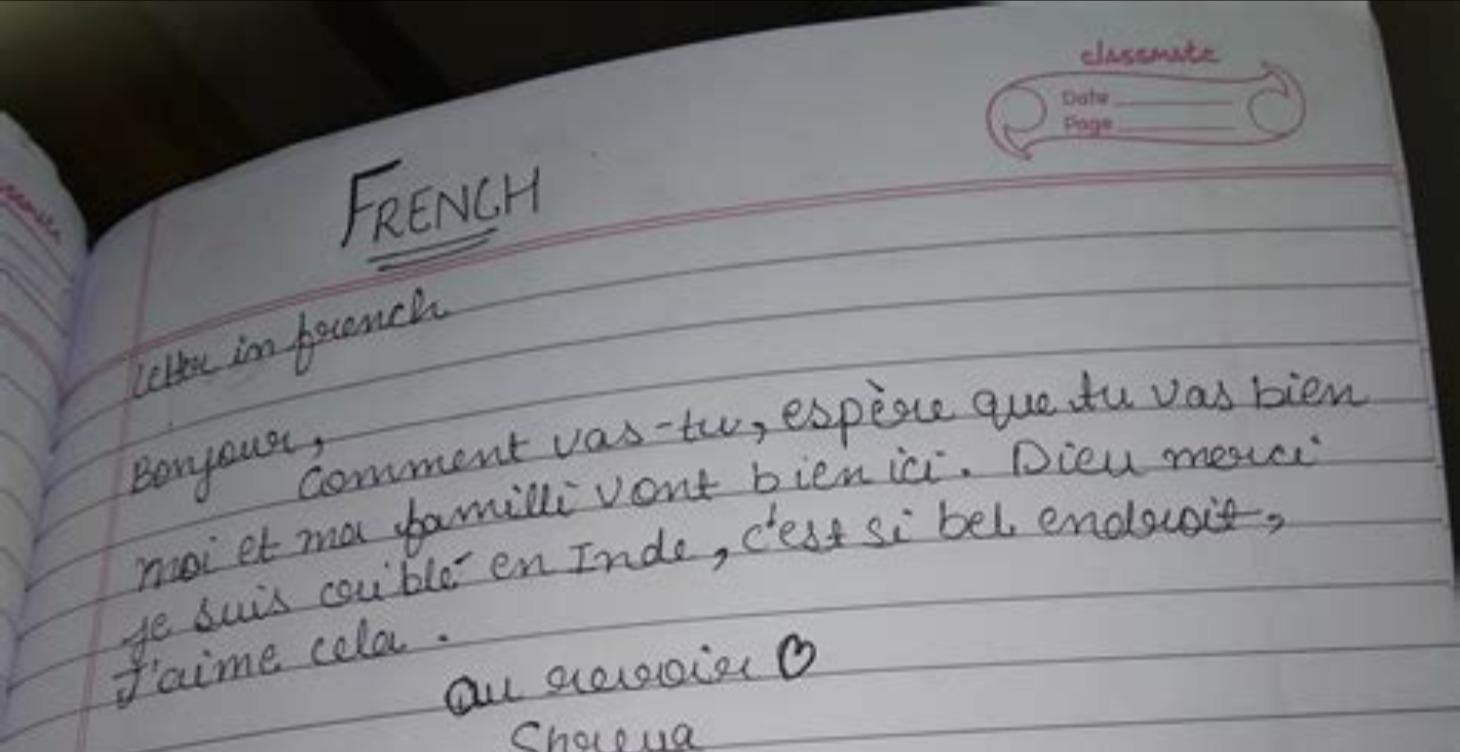 classmate
Date
Page
FRENCH
Letter in french
Bonjour,
Comment vas-tu, espère que tu vas bien
moi et ma familli vont bien ici. Dieu merci
je suis coublé en Inde, c'est si bel endroit,
J'aime cela.
au revoir